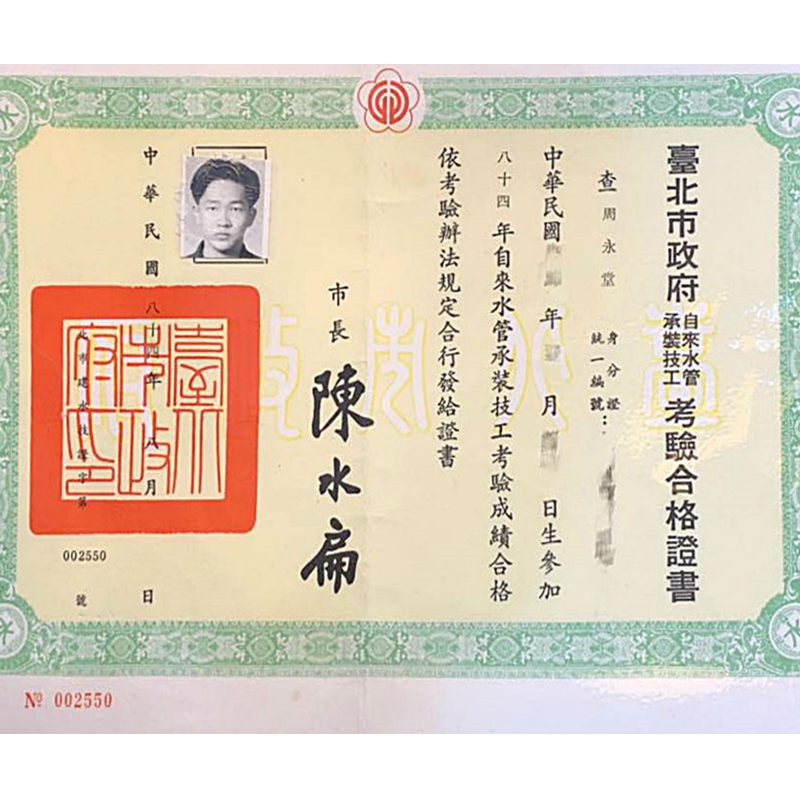 臺北市政府自來水管承裝技工考驗合格證書
查周永堂
身分證統一編號：
中華民國 年 月 日生參加
八十四年自來水管承裝技工考驗成績合格
依考驗辦法規定合行發給證書
市長 陳水扁
中華民國八十四年八月 日
市建水技證字第
002550
號
№ 002550